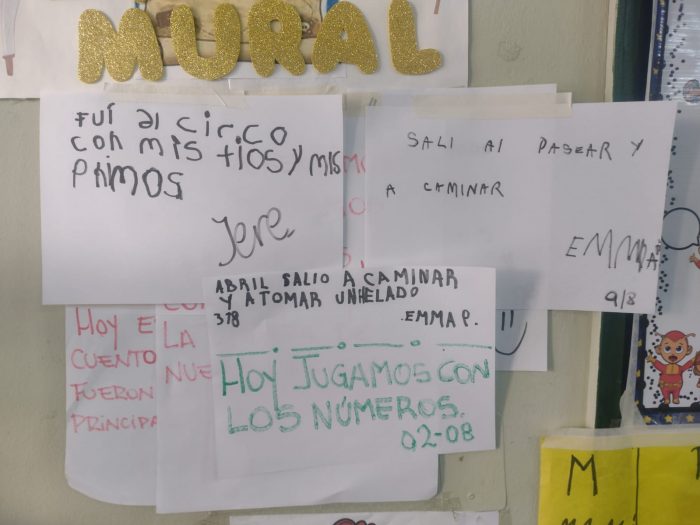 MURAL
FUÍ al circo
con mis tios y mis
Primos
Jere.
SALI Al PASEAR Y
A CAMINAR
EMMA
9/8
ABRIL SALIO A CAMINAR
Y A TOMAR UN HELADO
3/8 EMMA P.
HOY JUGAMOS CON
LOS NÚMEROS.
02-08
HOY E
CUENTO
FUERON
PRINCIPA
LA
NUE
M